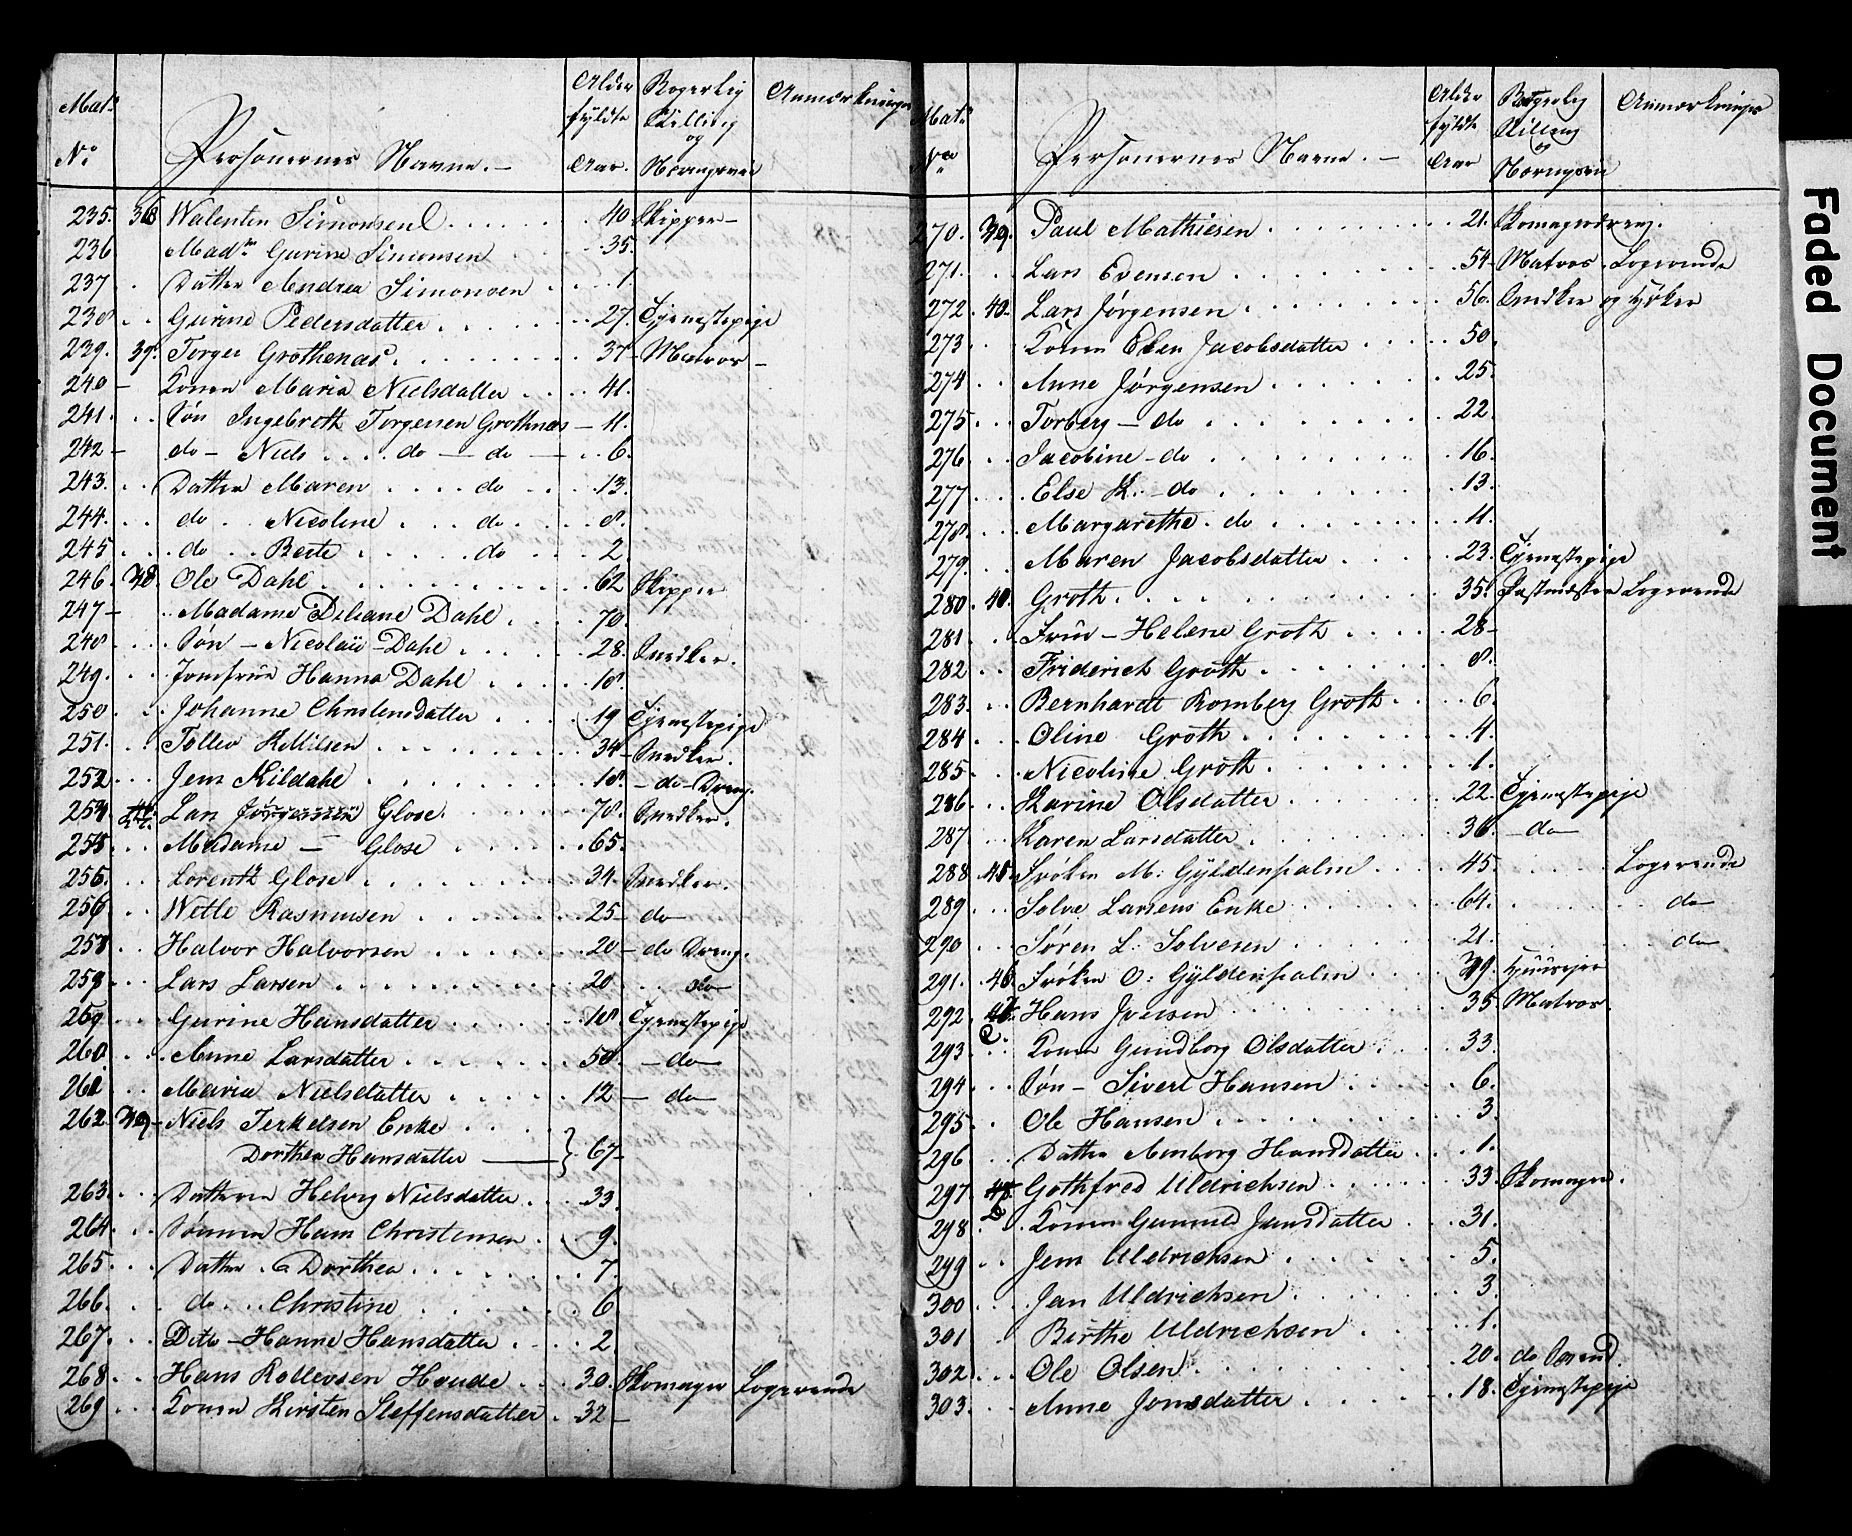 Mats
No
Personernes Navne.
Alder fyldte Aar.
Borgerlig Stilling og Næringsvei
Anmærkninger
235. 36 Walentin Simonsen 40 Skipper
236 Madm Gurine Simonsen 35.
237 Datter Andrea Simonsen 1.
238 Gurine Pedersdatter 27. Tjenestepige
239. 37. Torger Grothenæs. 37 Matros
240 Konen Maria Nielsdatter 41.
241. Søn Ingebreth Torgersen Grothnæs 11.
242 do Niels do do 6.
243. Datter Maren do 13.
244. do Nicoline do 8.
245 do Berte do 2
246. 38. Ole Dahl 62 Skipper
247 Madame Diliane Dahl 70.
248 Søn Nicolai Dahl 28. Snedker.
249. Jomfrue Hanna Dahl 18.
250 Johanne Christensdatter 19 Tjenestepige
251. Tollev Killilsen 34 Snedker.
252 Jens Kildahl 18 do Dreng.
254 Lars Jørgensen Glose. 78. Snedker.
255 Madame Glose 65.
256. Lorentz Glose 34. Snedker.
256 Wetle Rasmusen 25 do
258 Halvor Halvorsen 20 do Dreng.
259 Lars Larsen 20 do
259 Gurine Hansdatter 18 Tjenestepige
260 Anne Larsdatter 50. do
261 Maria Nielsdatter 12 do
262. 39 Niels Terkelsen Enke
Dorthea Hansdatter 67
263. Datteren Helvig Nielsdatter 33.
264 Sønnen Hans Christensen 9.
265 Datter Dorthea 7.
266. do Christine 6
267. Dito Hanne Hansdatter 2
268 Hans Rollevsen Houde 30. Skomager Logerende
269 Konen Kirsten Steffensdatter 32
Mats
No
Personernes Navne.
Alder fyldte Aar
Borgerlig Stilling og Næringsvei
Anmærkninger
270. 39. Paul Mathiesen 21. Skomagerdreng.
271. Lars Evensen 54 Matros Logerende
272 40. Lars Jørgensen 56. Snedker og Høker
273 Konen Elen Jacobsdatter 50.
274 Anne Jørgensen 25.
275 Torberg do 22.
276 Jacobine do 16.
277 Else K. do 13.
278. Margarethe do 11.
279. Maren Jacobsdatter 23. Tjenestepige
280 40. Groth 35. Postmester Logerende
281 Frue Helene Groth 28
282 Friderich Groth 8.
283. Bernhardt Romberg Groth 6.
284 Oline Groth 4.
285 Nicoline Groth 1.
286 Karine Olsdatter 22. Tjenestepige
287 Karen Larsdatter 36. do
288 45. Frøken M: Gyldenpalm 45. Logerende
289 Solve Larsens Enke 64. do
290 Søren L: Solvesen 21. do
291. 46. Frøken O: Gyldenpalm 39. Huusejer
292. Hans Iversen 35 Matros.
293. Konen Gundborg Olsdatter 33.
294 Søn Sivert Hansen 6.
295 Ole Hansen 3.
296 Datter Anborg Hansdatter 1.
297 Gothfred Uldrichsen 33. Skomager.
298 Konen Gunnild Jansdatter 31.
299 Jens Uldrichsen 5.
300 Jan Uldrichsen 3
301 Birthe Uldrichsen 1.
302 Ole Olsen 20. do Svend.
303. Anne Jonsdatter 18. Tjenestepige
Faded Document